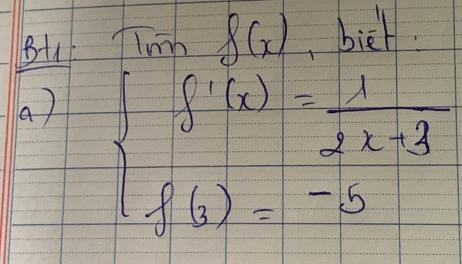 Bt1: Tìm f(x), biết:
a) { f'(x) = 1/(2x+3)
f(3) = -5